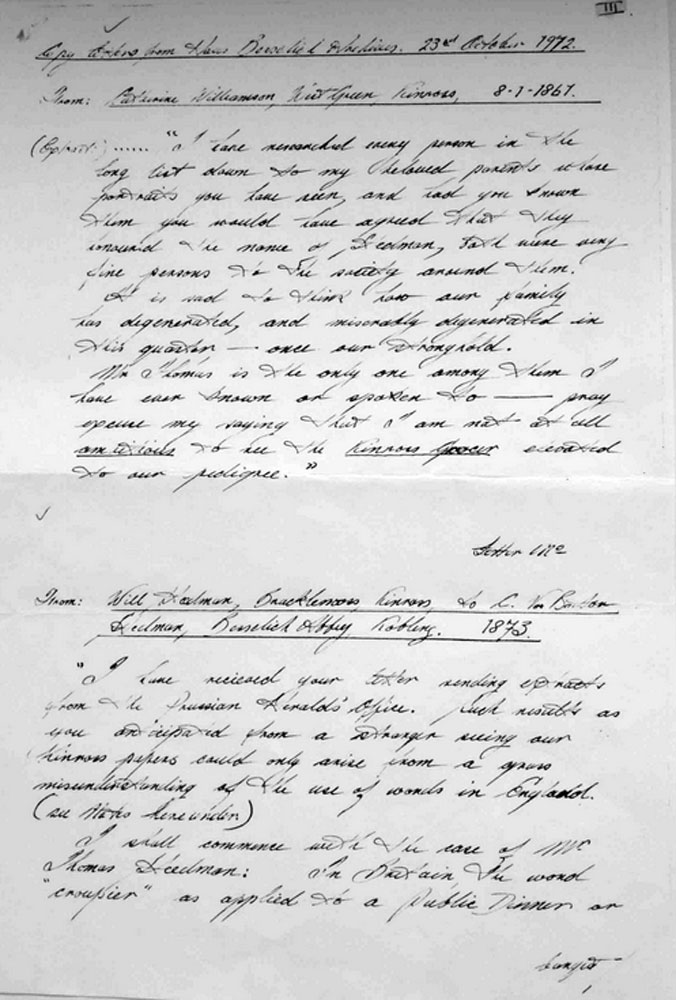 III
Copy letters from Haus Besselich Archives. 23rd October 1972.
From: Catherine Williamson, West Green, Kinross, 8-1-1867.
(Extract:) ...... "I have researched every person in the
long list down to my beloved parents whose
portraits you have seen, and had you known
them you would have agreed that they
honoured the name of Stedman, both were very
fine persons to the society around them.
It is sad to think how our family
has degenerated, and miserably degenerated in
this quarter — once our stronghold.
Mr Thomas is the only one among them I
have ever known or spoken to — pray
excuse my saying that I am not at all
ambitious to see the Kinross Grocer elevated
to our pedigree."
Letter No2
From: Will Stedman, Kinross, to C. Von Barton
Stedman, Besselich Abbey Koblenz. 1873.
"I have recieved your letter sending extracts
from the Prussian Heralds' Office. Such results as
you anticipated from a stranger seeing our
Kinross papers could only arise from a gross
misunderstanding of the use of words in England.
(see Notes hereunder)
I shall commence with the case of Mr
Thomas Stedman: In Britain the word
"croupier" as applied to a Public Dinner or
banquet